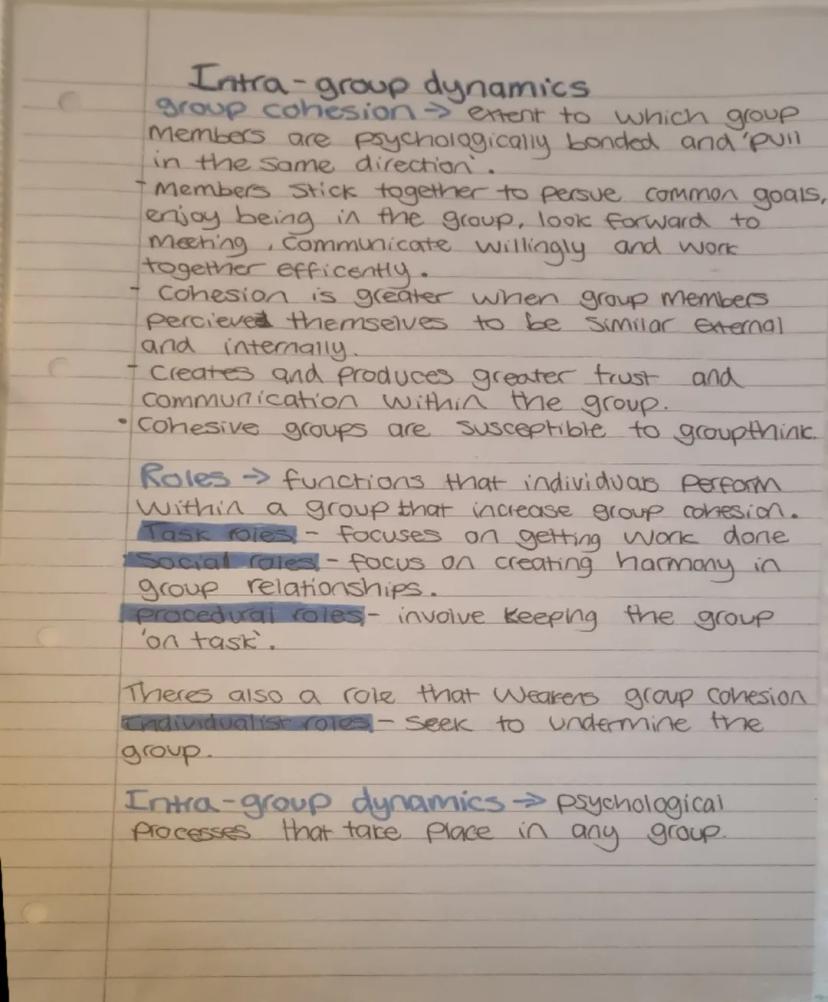 Intra-group dynamics
group cohesion → extent to which group
members are psychologically bonded and 'pull
in the same direction'.
- Members stick together to persue common goals,
enjoy being in the group, look forward to
meeting, communicate willingly and work
together efficently.
- Cohesion is greater when group members
percieved themselves to be similar external
and internally.
- Creates and produces greater trust and
communication within the group.
• Cohesive groups are susceptible to groupthink.
Roles → functions that individuals perform
within a group that increase group cohesion.
Task roles - focuses on getting work done
Social roles - focus on creating harmony in
group relationships.
procedural roles - involve keeping the group
'on task'.
Theres also a role that weakens group cohesion
individualist roles - seek to undermine the
group.
Intra-group dynamics → psychological
processes that take place in any group.